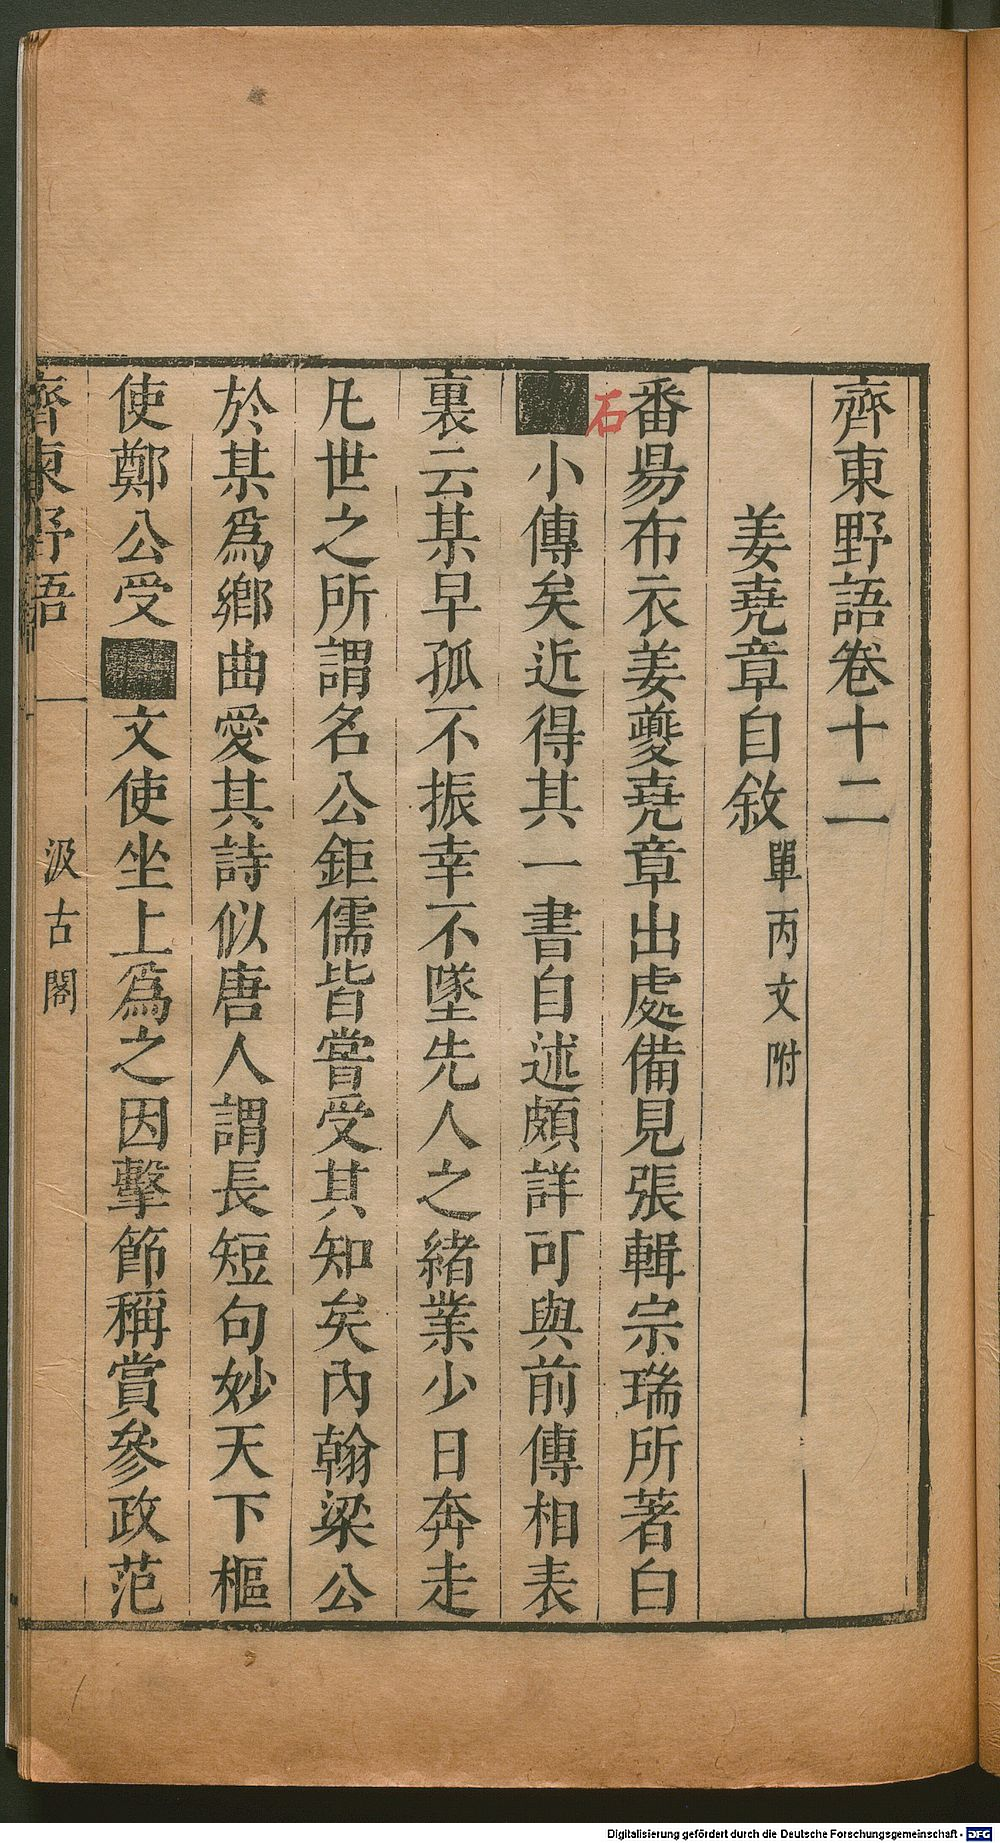 齊東野語卷十二
姜堯章自敘單丙文附
番昜布衣姜夔堯章出處備見張輯宗瑞所著白
石
■小傳矣近得其一書自述頗詳可與前傳相表
裏云某早孤不振幸不墜先人之緒業少日奔走
凡世之所謂名公鉅儒皆嘗受其知矣內翰梁公
於某爲鄉曲愛其詩似唐人謂長短句妙天下樞
使鄭公受■文使坐上爲之因擊節稱賞參政范
齊東野語 一 汲古閣
Digitalisierung gefördert durch die Deutsche Forschungsgemeinschaft - DFG